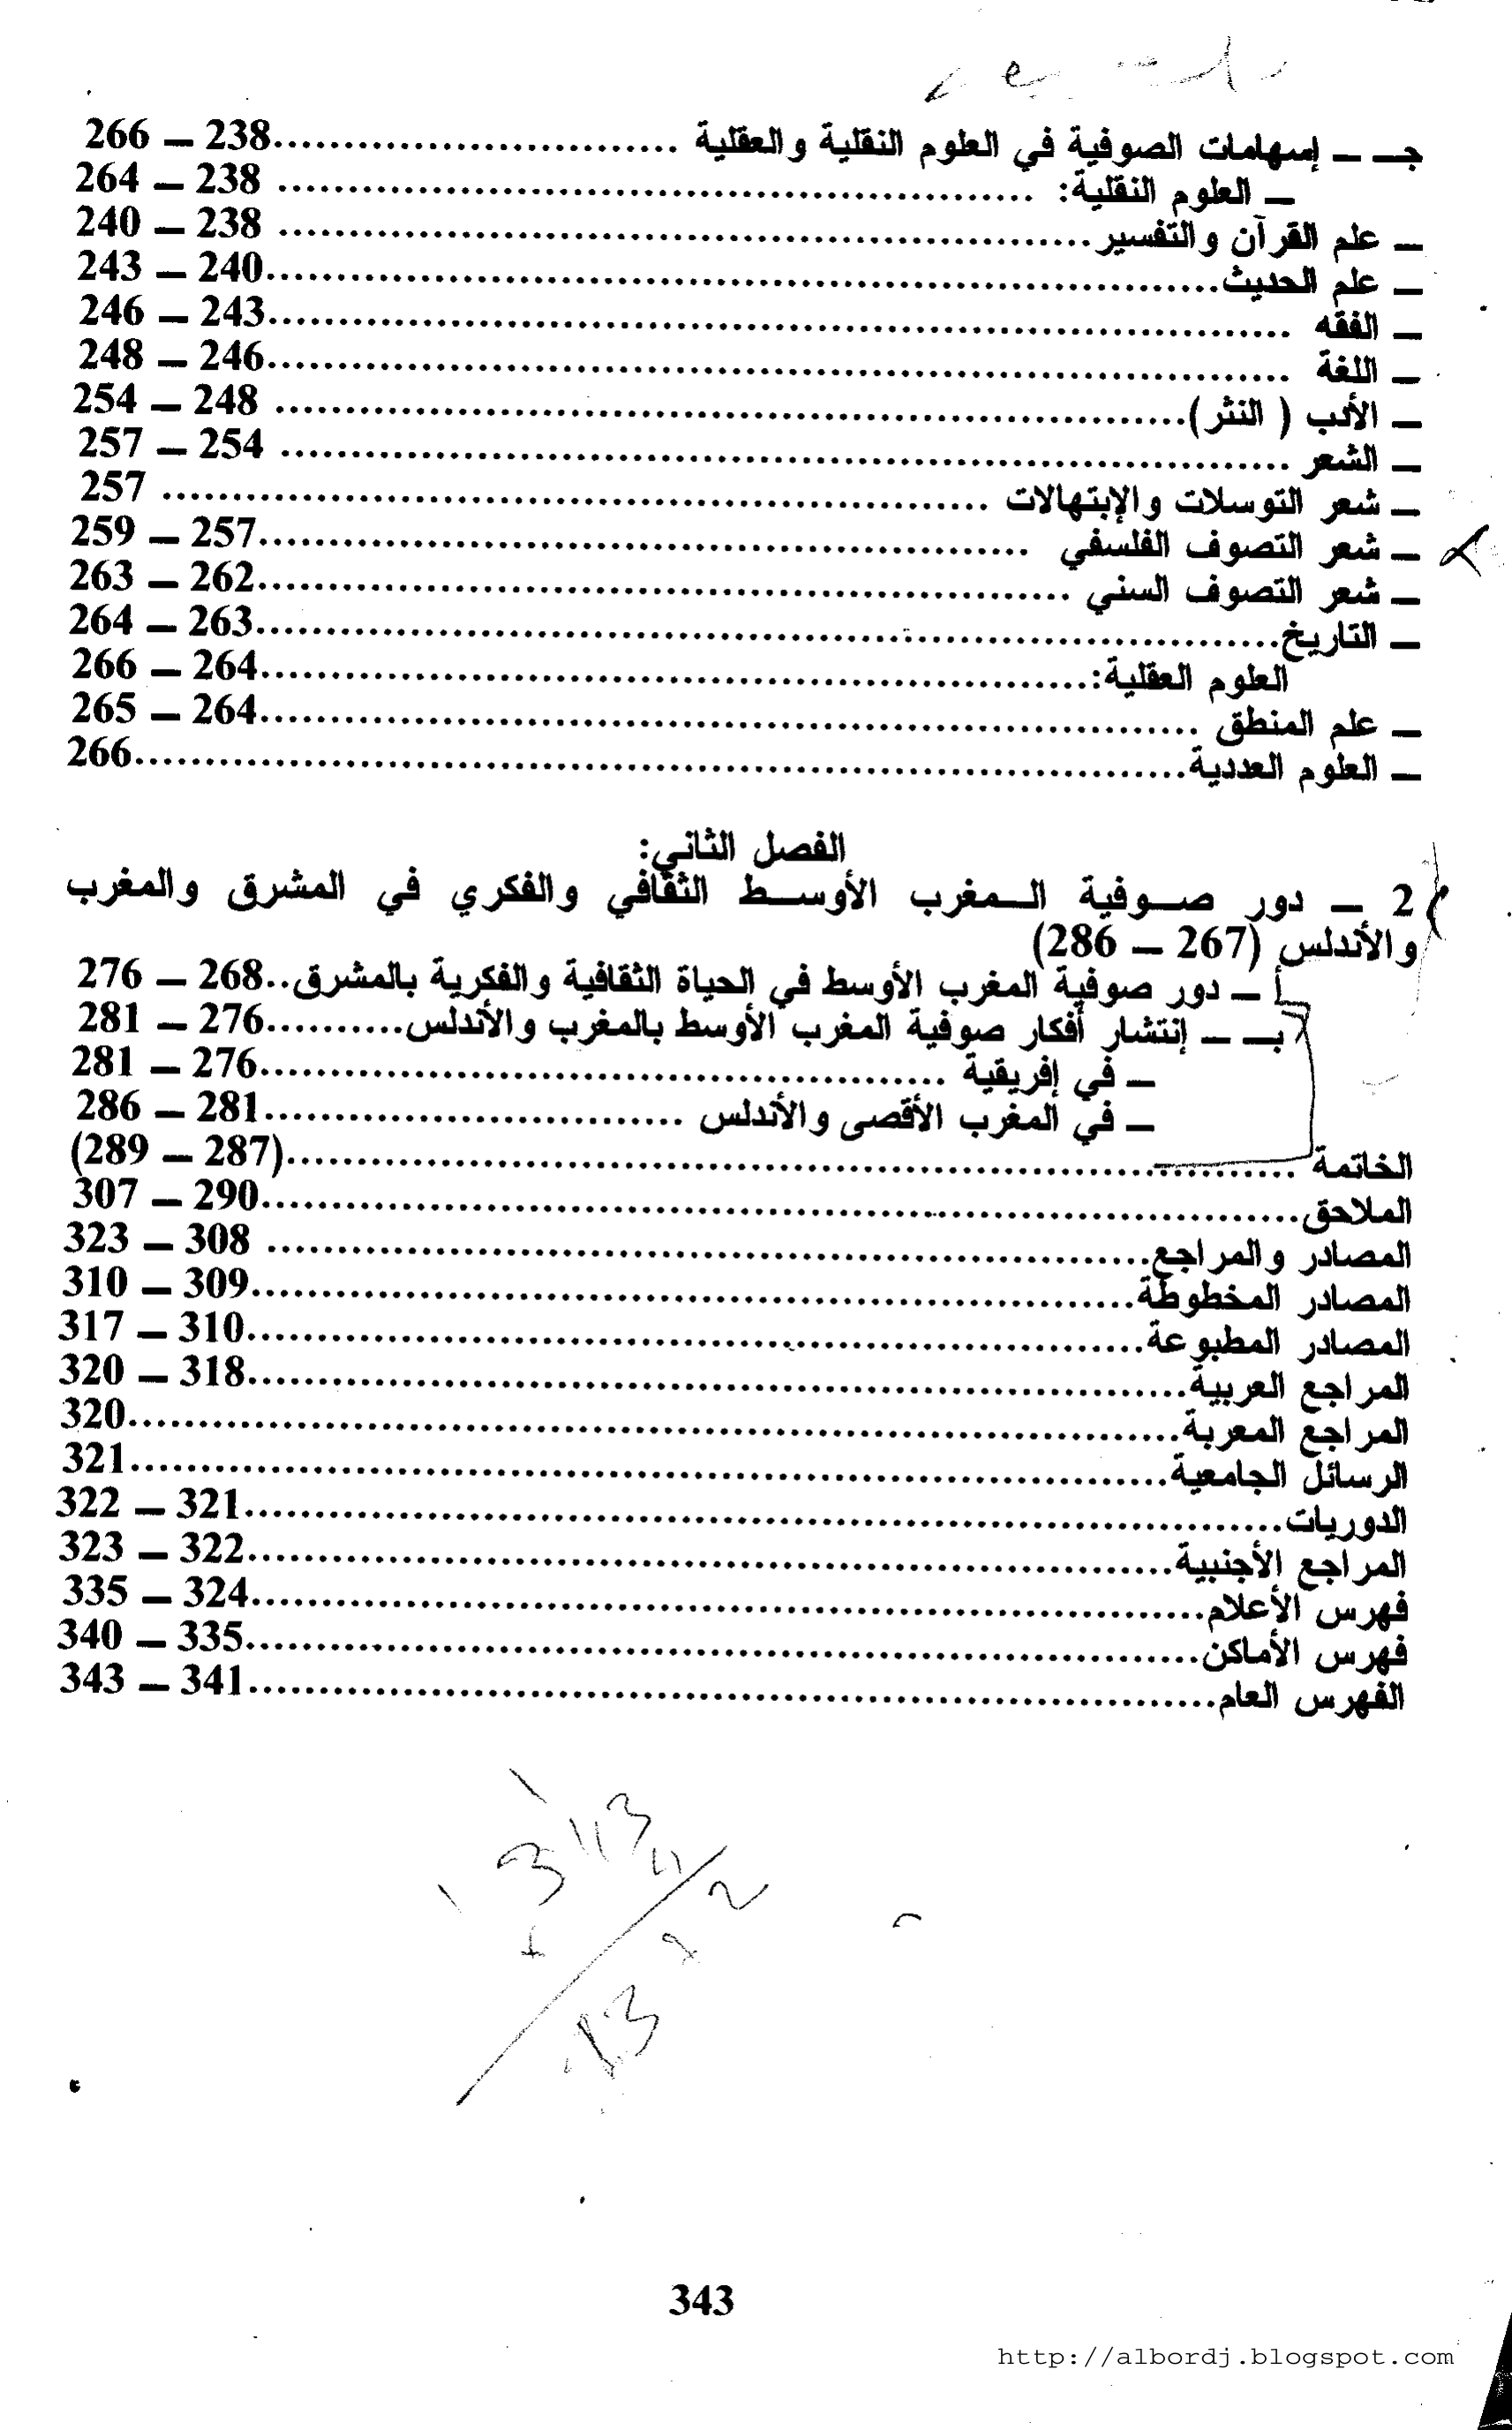 جـ – إسهامات الصوفية في العلوم النقلية والعقلية ..............................238 – 266
– العلوم النقلية: ...................................................... 238 – 264
– علم القرآن والتفسير.......................................................... 238 – 240
– علم الحديث....................................................................240 – 243
– الفقه .........................................................................243 – 246
– اللغة .........................................................................246 – 248
– الأدب ( النثر)................................................................. 248 – 254
– الشعر ........................................................................ 254 – 257
– شعر التوسلات والإبتهالات ........................................................... 257
– شعر التصوف الفلسفي .......................................................257 – 259
– شعر التصوف السني ..........................................................262 – 263
– التاريخ.........................................................................263 – 264
العلوم العقلية:...........................................................264 – 266
– علم المنطق ...................................................................264 – 265
– العلوم العددية...........................................................................266
الفصل الثاني:
2 – دور صـوفية الـمغرب الأوسـط الثقافي والفكري في المشرق والمغرب
والأندلس (267 – 286)
أ – دور صوفية المغرب الأوسط في الحياة الثقافية والفكرية بالمشرق..268 – 276
بـ – إنتشار أفكار صوفية المغرب الأوسط بالمغرب والأندلس..........276 – 281
– في إفريقية .................................................276 – 281
– في المغرب الأقصى والأندلس ..............................281 – 286
الخاتمة ........................................................................(287 – 289)
الملاحق..........................................................................290 – 307
المصادر والمراجع............................................................... 308 – 323
المصادر المخطوطة...............................................................309 – 310
المصادر المطبوعة................................................................310 – 317
المراجع العربية...................................................................318 – 320
المراجع المعربة...........................................................................320
الرسائل الجامعية..........................................................................321
الدوريات..........................................................................321 – 322
المراجع الأجنبية..................................................................322 – 323
فهرس الأعلام....................................................................324 – 335
فهرس الأماكن....................................................................335 – 340
الفهرس العام.....................................................................341 – 343
343
http://albordj.blogspot.com